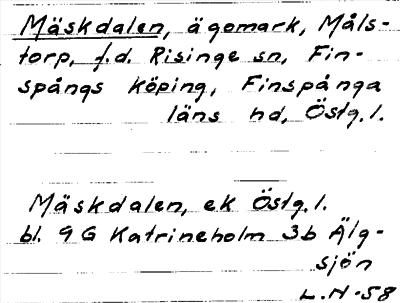 Mäskdalen, ägomark, Måls-
torp, f.d. Risinge sn, Fin-
spångs köping, Finspånga
läns hd, Östg.l.
Mäskdalen, ek Östg.l.
bl. 9G Katrineholm 3b Älg-
sjön
L.H-58